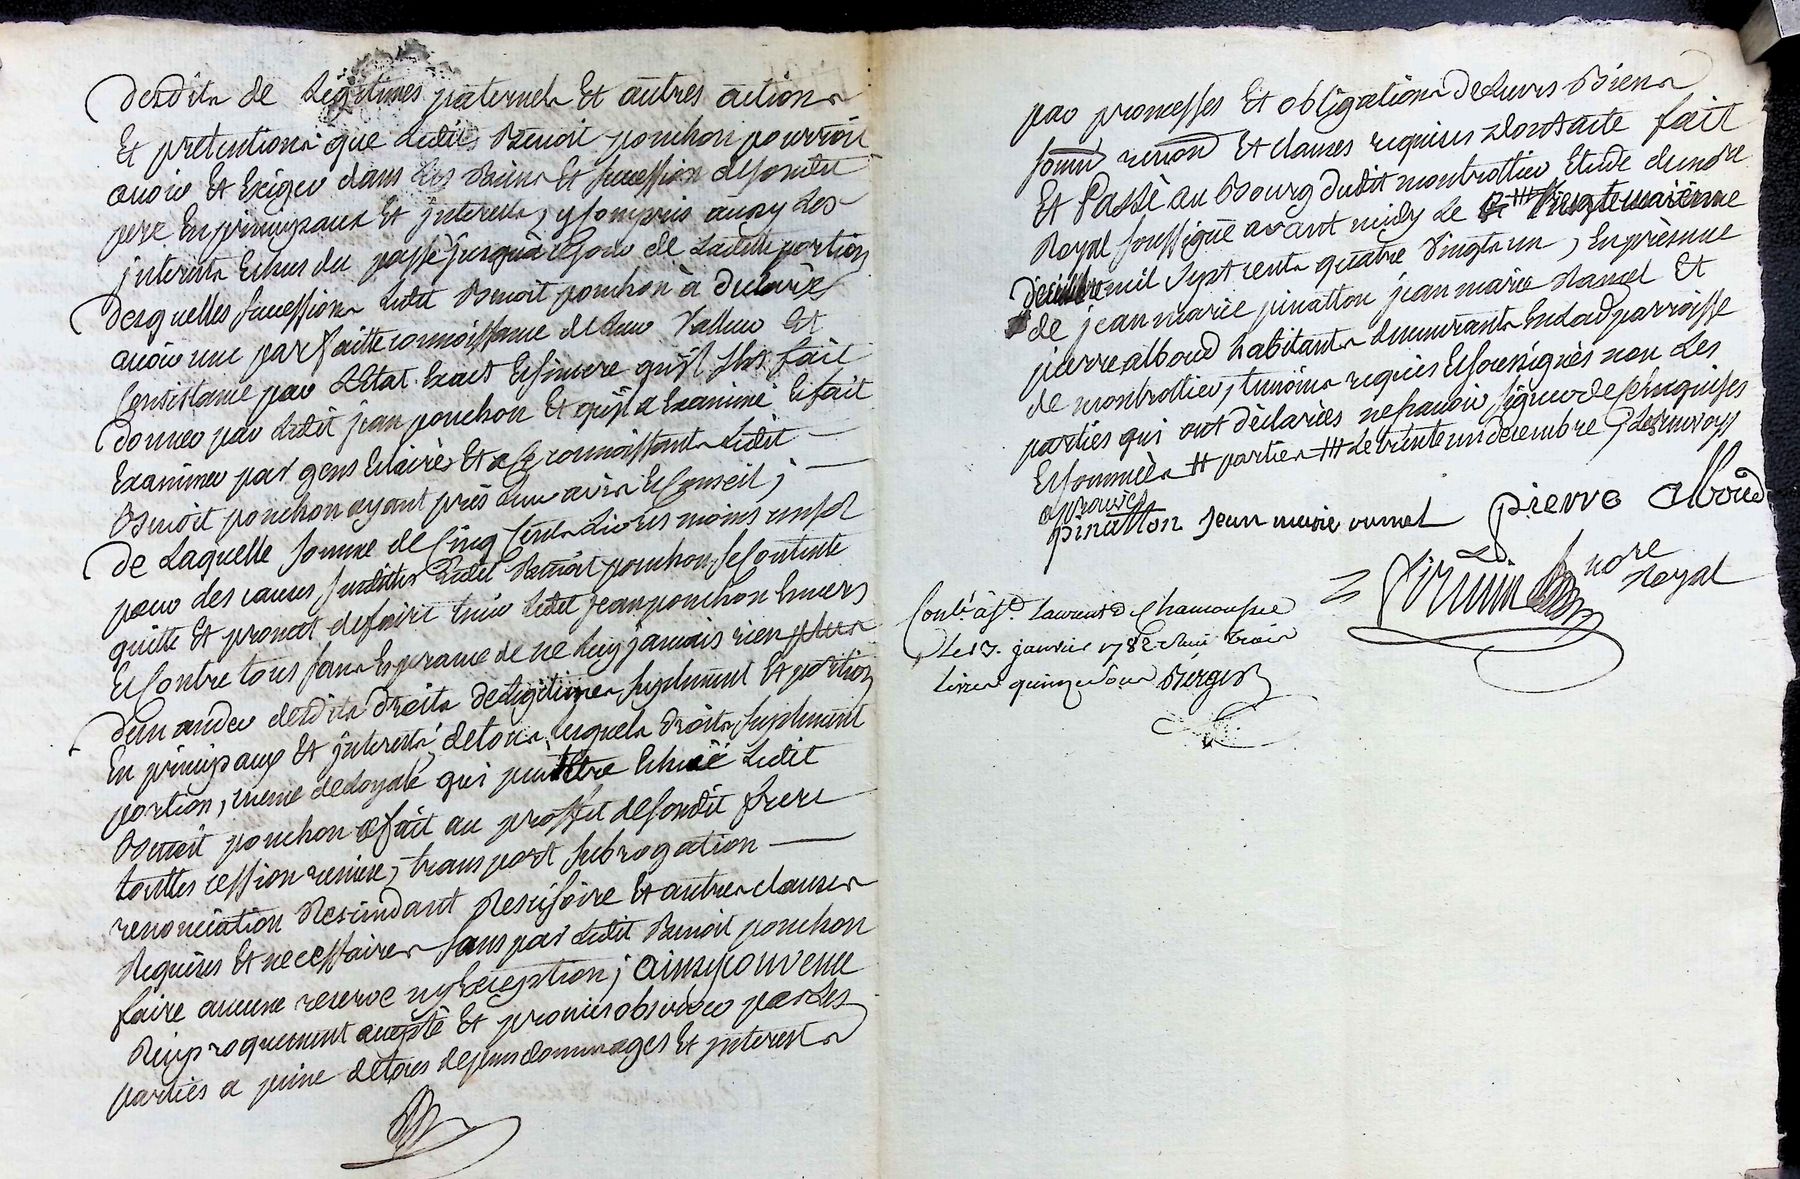 desdits de Légitimes paternels Et autres actions
Et pretentions que Ledit Benoit ponchon pourroit
avoir Et Exiger dans les Biens Et succession desondit
pere En principaux Et jnterests, y compris aussy Les
jnterests Echus du passé jusquà cejour de Ladite portion
desquelles successions Ledit Benoit ponchon à declaré
avoir une parfaitte connoissance de Leur Valleur Et
Consistance par L'Etat Exact Et sincere qu'il s'est fait
donner par Ledit jean ponchon Et qu'il a Examiné Et fait
Examiner par gens Eclairés Et a ce connoissants Ledit
Benoit ponchon ayant pris Leur avis Et Conseil;
de Laquelle somme de Cinq Cents Livres moins un sol
pour des causes susdittes Ledit Benoit ponchon, se Contente
quitte Et promet defaire tenir Ledit jean ponchon Envers
Et Contre tous sans Esperance de ne Luy jamais rien plus
demander desdits droits de Legitimes, suplement Et portion
En principaux Et jnterests, detous lesquels droits, suplement
portion, meme de Loyale qui peut être Echue Ledit
Benoit ponchon a fait au proffit desondit frere
touttes cession remise, transport subrogation
renonciation Rescindant Rescisoire Et autres clauses
Requises Et necessaires sans par Ledit Benoit ponchon
faire aucune reserve ny Exception; ainsy convenu
Reciproquement accepté Et promis observer par Les
parties a peine de tous depens dommages Et jnterests
par promesses Et obligations de Leurs Biens
soum renon Et clauses requises Dont acte fait
Et Passé au Bourg dudit montrottier Etude du nore
Royal soussigné avant midy Le
mil sept cents quatre Vingts un, En présence
de jean marie pinatton jean marie Et
pierre alboud habitants demeurants En Lad parroisse
de montrottier, temoins requis Et soussignés non Les
parties qui ont déclarés ne savoir signer de Ce Enquises
Et sommées # parties ### Le trente un decembre, Les renvoys
aprouvés
pinatton jean marie pierre alboud
nore
Royal
Conlé à St Laurent D Chamousset
Le 13. janvier 1782 Reçu trois
Livres quinze sous Berger